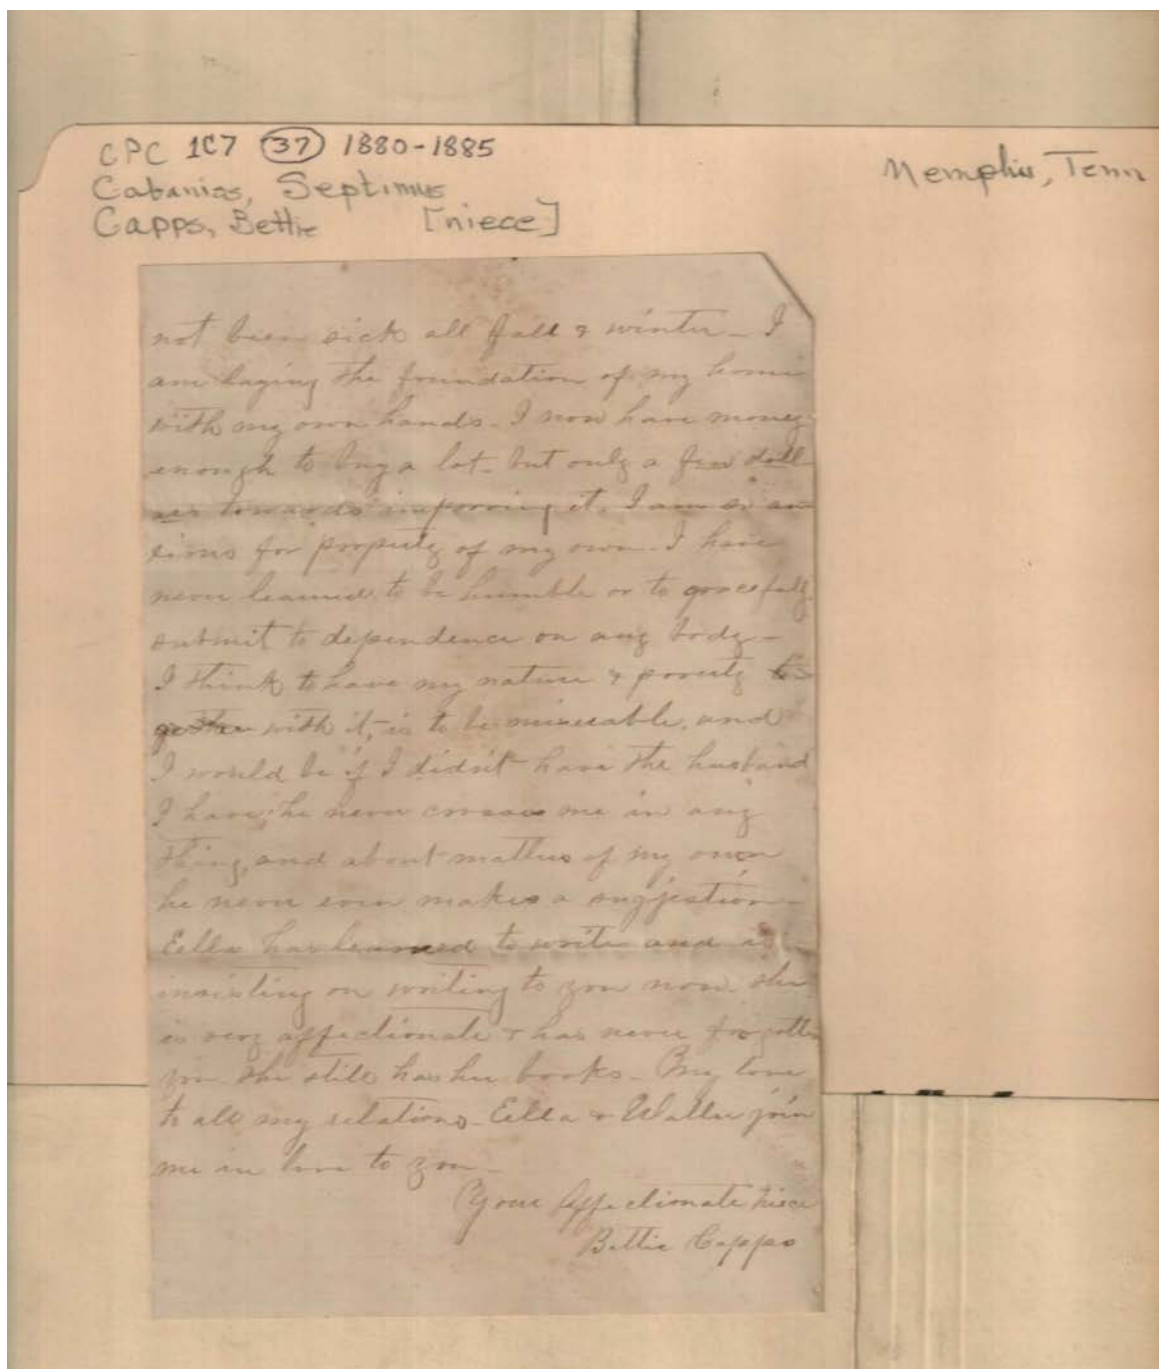 CPC 1C7 (37) 1880-1885
Cabaniss, Septimus
Capps, Bettie [niece]
Memphis, Tenn
not been sick all fall & winter - I
am laying the foundation of my home
with my own hands - I now have money
enough to buy a lot - but only a few doll
ars towards improving it. I am so an
xious for property of my own - I have
never learned to be humble or to gracefully
submit to dependence on any body -
I think to have my nature & poverty to
gether with it, is to be miserable, and
I would be if I didn't have the husband
I have, he never crosses me in any
thing, and about matters of my own
he never even makes a suggestion -
Eella has learned to write and is
insisting on writing to you now she
is very affectionate & has never forgotten
you. She still has her books - My love
to all my relations - Eella & Walter join
me in love to you -
Your Affectionate niece
Bettie Capps